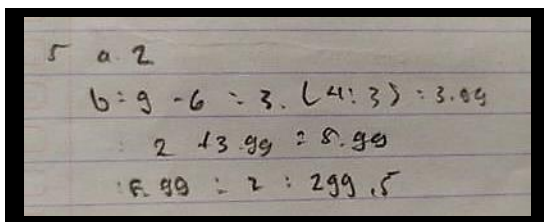 5 a. 2
b = 9 - 6 = 3. (4:3) = 3.99
: 2 + 3.99 = 5.99
: 5.99 : 2 : 299.5